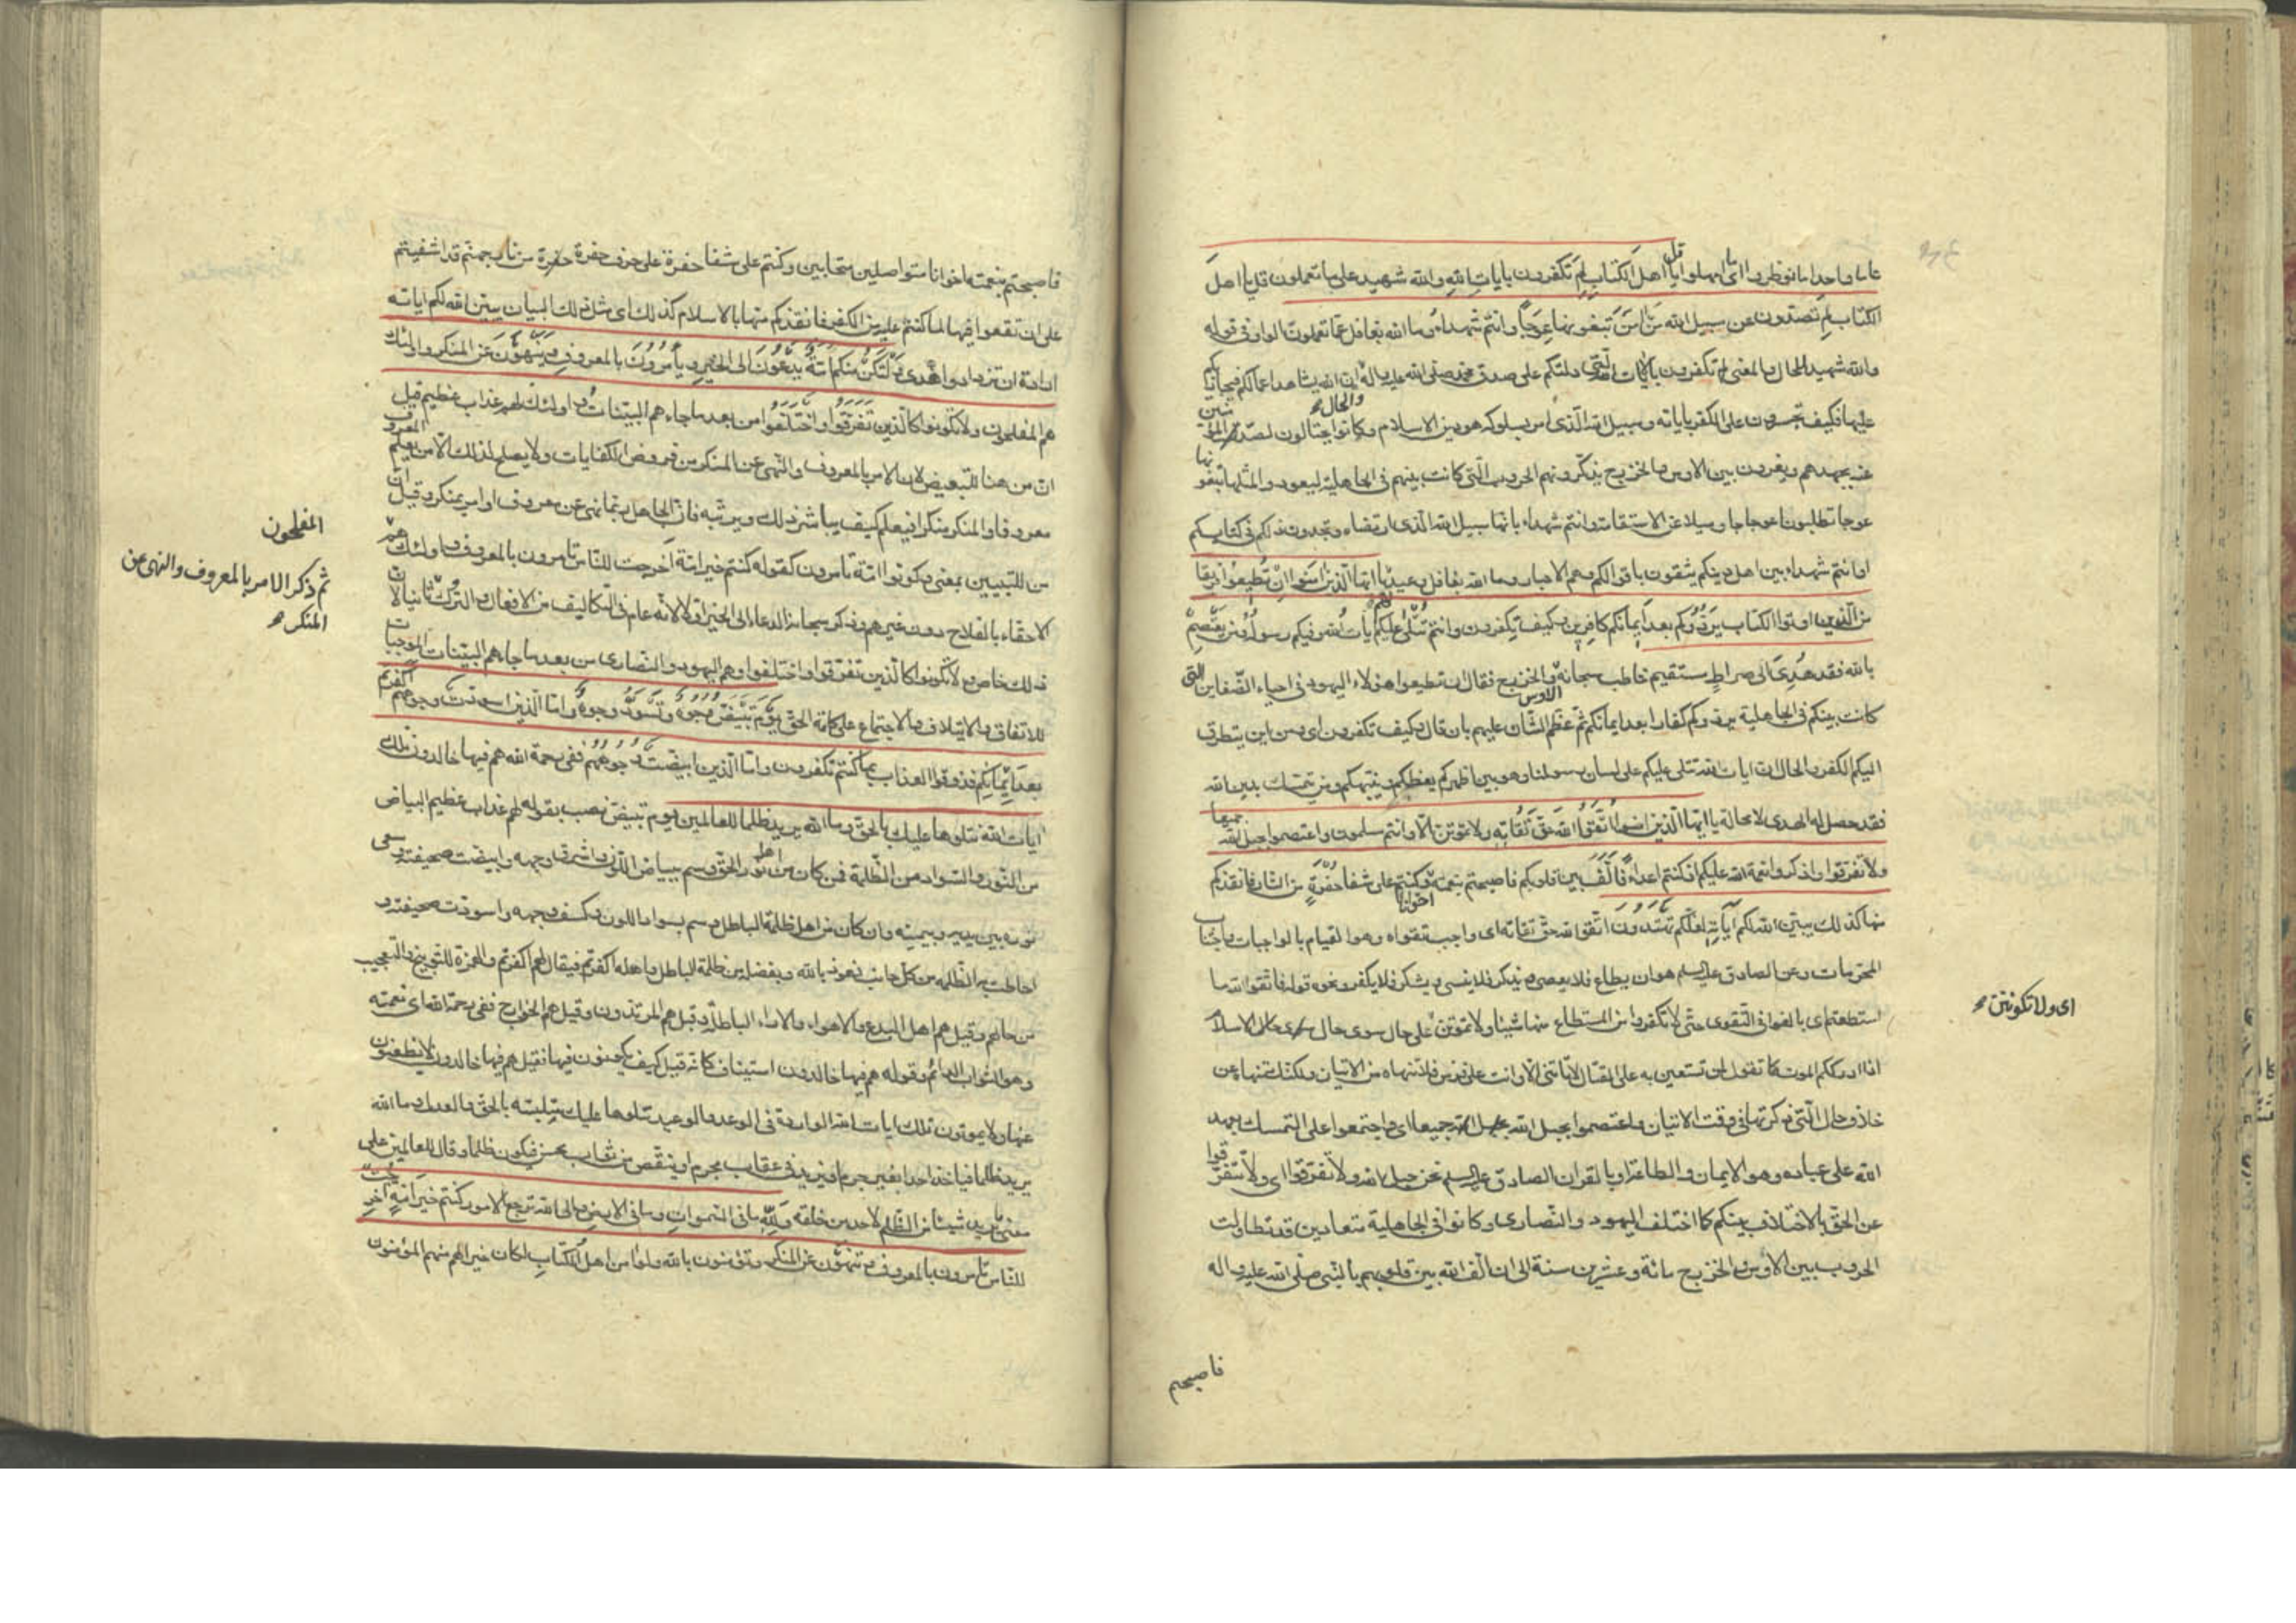 عاما واحدا ما نوظروا اى ما امهلوا قل يا اهل الكتاب لم تكفرون بايات الله والله شهيد على ما تعملون قل يا اهل
الكتاب لم تصدون عن سبيل الله من امن تبغونها عوجا وانتم شهداء وما الله بغافل عما تعملون الواو فى قوله
والله شهيد للحال والمعنى لم تكفرون بالايات التى دلتكم على صدق محمد صلى الله عليه واله والحال ان الله يشاهد اعمالكم فيجازيكم
عليها فكيف تجسرون على الكفر باياته وسبيل الله الذى امر بسلوكه هو دين الاسلام وكانوا يحتالون لصد المؤمنين
عنه بجهدهم ويغرون بين الاوس والخزرج يذكرونهم الحروب التى كانت بينهم فى الجاهلية ليعودوا لمثلها تبغونها
عوجا تطلبون اعوجاجا وميلا عن الاستقامة وانتم شهداء بانها سبيل الله الذى ارتضاه وتجدون ذلكم فى كتابكم
او انتم شهداء بين اهل دينكم يثقون باقوالكم وهم الاحبار وما الله بغافل وعيد يا ايها الذين امنوا ان تطيعوا فريقا
من الذين اوتوا الكتاب يردوكم بعد ايمانكم كافرين وكيف تكفرون وانتم تتلى عليكم ايات الله وفيكم رسوله ومن يعتصم
بالله فقد هدى الى صراط مستقيم خاطب سبحانه الاوس والخزرج فقال ان تطيعوا هولاء اليهود فى احياء الضغاين التى
كانت بينكم فى الجاهلية يردوكم كفارا بعد ايمانكم ثم عظم الشان عليهم بان قال وكيف تكفرون اى ومن اين يتطرق
اليكم الكفر والحال ان ايات الله تتلى عليكم على لسان رسولنا وهو بين اظهركم يعظكم وينبهكم ومن يتمسك بدين الله
فقد حصل له الهدى لا محالة يا ايها الذين امنوا اتقوا الله حق تقاته ولا تموتن الا وانتم مسلمون واعتصموا بحبل الله جميعا
ولا تفرقوا واذكروا نعمة الله عليكم اذ كنتم اعداء فالف بين قلوبكم فاصبحتم بنعمته اخوانا وكنتم على شفا حفرة من النار فانقذكم
منها كذلك يبين الله لكم اياته لعلكم تهتدون اتقوا الله حق تقاته اى واجب تقواه وهو القيام بالواجبات واجتناب
المحرمات وعن الصادق عليه السلم هو ان يطاع فلا يعصى ويذكر فلا ينسى ويشكر فلا يكفر ونحوه قوله فاتقوا الله ما
استطعتم اى بالغوا فى التقوى حتى لا تتركوا من المستطاع منها شيئا ولا تموتن على حال سوى حال الاسلام
اى ولا تكونن
اذا ادرككم الموت كما تقول لمن تستعين به على القتال لا تاتنى الا وانت على فرس فلا تنهاه من الاتيان ولكنك تنهاه عن
خلاف حال التى ذكرتها فى وقت الاتيان واعتصموا بحبل الله جميعا اى واجتمعوا على التمسك بعهد
الله على عباده وهو الايمان والطاعة او بالقران الصادق عليه السلم نحن حبل الله ولا تفرقوا اى ولا تتفرقوا
عن الحق بالاختلاف بينكم كما اختلف اليهود والنصارى وكانوا فى الجاهلية متعادين قد تطاولت
الحروب بين الاوس والخزرج مائة وعشرين سنة الى ان الف الله بين قلوبهم بالنبى صلى الله عليه واله
فاصبحتم
فاصبحتم بنعمته اخوانا متواصلين متحابين وكنتم على شفا حفرة على حرف حفرة من نار جهنم قد اشفيتم
على ان تقعوا فيها لما كنتم عليه من الكفر فانقذكم منها بالاسلام كذلك اى مثل ذلك البيان يبين الله لكم اياته
ارادة ان تزدادوا هدى ولتكن منكم امة يدعون الى الخير ويامرون بالمعروف وينهون عن المنكر واولئك
هم المفلحون ولا تكونوا كالذين تفرقوا واختلفوا من بعد ما جاءهم البينات واولئك لهم عذاب عظيم قيل
ان من هنا للتبعيض لان الامر بالمعروف والنهى عن المنكر من فروض الكفايات ولا يصلح لذلك الا من يعلم المعروف
معروفا والمنكر منكرا فيعلم كيف يباشر ذلك ويرتبه فان الجاهل ربما نهى عن معروف او امر بمنكر وقيل ان
من للتبيين بمعنى وكونوا امة تامرون كقوله كنتم خير امة اخرجت للناس تامرون بالمعروف واولئك هم
المفلحون
الاحقاء بالفلاح دون غيرهم وذكر سبحانه الدعاء الى الخير اولا لانه عام فى التكاليف من الافعال والتروك ثانيا لان
ثم ذكر الامر بالمعروف والنهى عن
المنكر
ذلك خاص ولا تكونوا كالذين تفرقوا واختلفوا وهم اليهود والنصارى من بعد ما جاءهم البينات الموجبات
للاتفاق والايتلاف والاجتماع على كلمة الحق يوم تبيض وجوه وتسود وجوه فاما الذين اسودت وجوههم اكفرتم
بعد ايمانكم فذوقوا العذاب بما كنتم تكفرون واما الذين ابيضت وجوههم ففى رحمة الله هم فيها خالدون تلك
ايات الله نتلوها عليك بالحق وما الله يريد ظلما للعالمين يوم تبيض نصب بقوله لهم عذاب عظيم البياض
من النور والسواد من الظلمة فمن كان من اهل نور الحق وسم ببياض اللون واشرق وجهه وابيضت صحيفته وسعى
نوره بين يديه وبيمينه وان كان من اهل ظلمة الباطل وسم بسواد اللون وكسف وجهه واسودت صحيفته و
احاطت به الظلمه من كل جانب نعوذ بالله وبفضله من ظلمة الباطل واهله اكفرتم فيقال لهم اكفرتم والهمزة للتوبيخ والتعجيب
من حالهم وقيل هم اهل البدع والاهواء والاراء الباطلة وقيل هم المرتدون وقيل هم الخوارج ففى رحمة الله اى نعمته
وهو الثواب الدائم وقوله هم فيها خالدون استيناف كانه قيل كيف يكونون فيها فقيل هم فيها خالدون لا يظعنون
عنها ولا يموتون تلك ايات الله الواردة فى الوعد والوعيد نتلوها عليك متلبسة بالحق والعدل وما الله
يريد ظلما فياخذ احدا بغير جرم او يزيد فى عقاب مجرم او ينقص من ثواب محسن فيكون ظلما وقال للعالمين على
معنى ما يريد شيئا من الظلم لاحد من خلقه ولله ما فى السموات وما فى الارض والى الله ترجع الامور كنتم خير امة اخرجت
للناس تامرون بالمعروف وتنهون عن المنكر وتؤمنون بالله ولو امن اهل الكتاب لكان خيرا لهم منهم المؤمنون